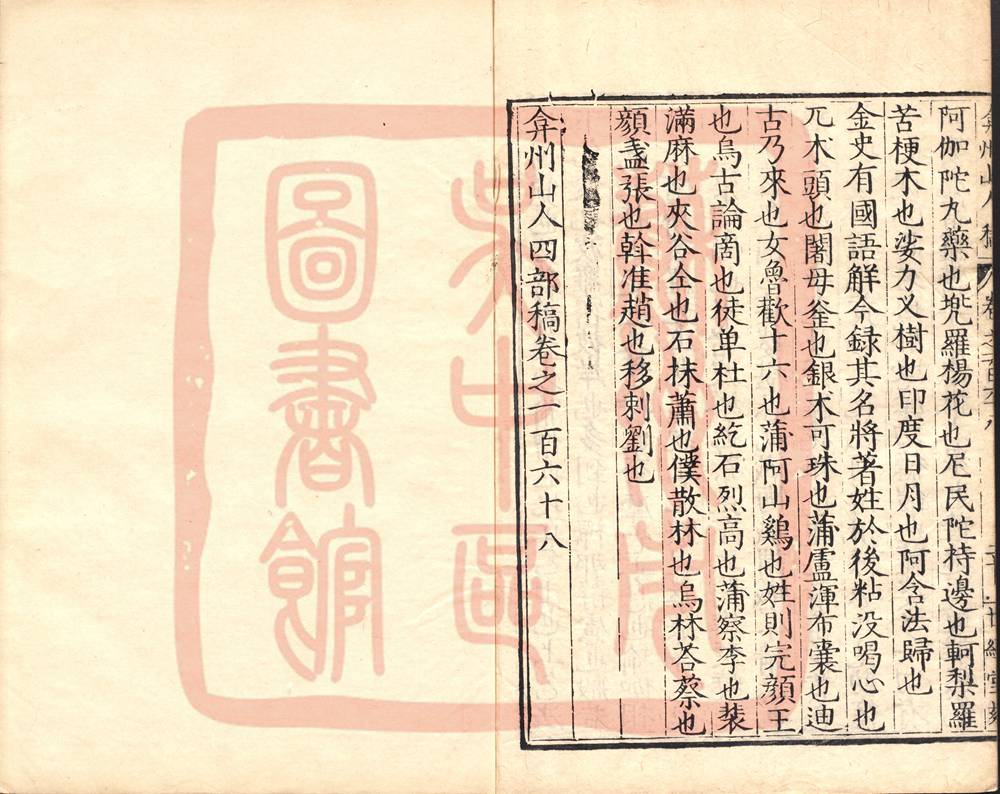 阿伽陀九藥也兠羅楊花也尼民陀持邊也軻梨羅
苦梗木也娑力叉樹也印度日月也阿含法歸也
金史有國語解今録其名將著姓於後粘没喝心也
兀朮頭也闍毋釜也銀朮可珠也蒲盧渾布囊也迪
古乃來也女魯歡十六也蒲阿山鷄也姓則完顔王
也烏古論啇也徒单杜也紇石烈高也蒲察李也裴
滿麻也夾谷仝也石抹蕭也僕散林也烏林荅蔡也
顔盞張也斡准趙也移剌劉也
弇州山人四部稿卷之一百六十八
圖書館